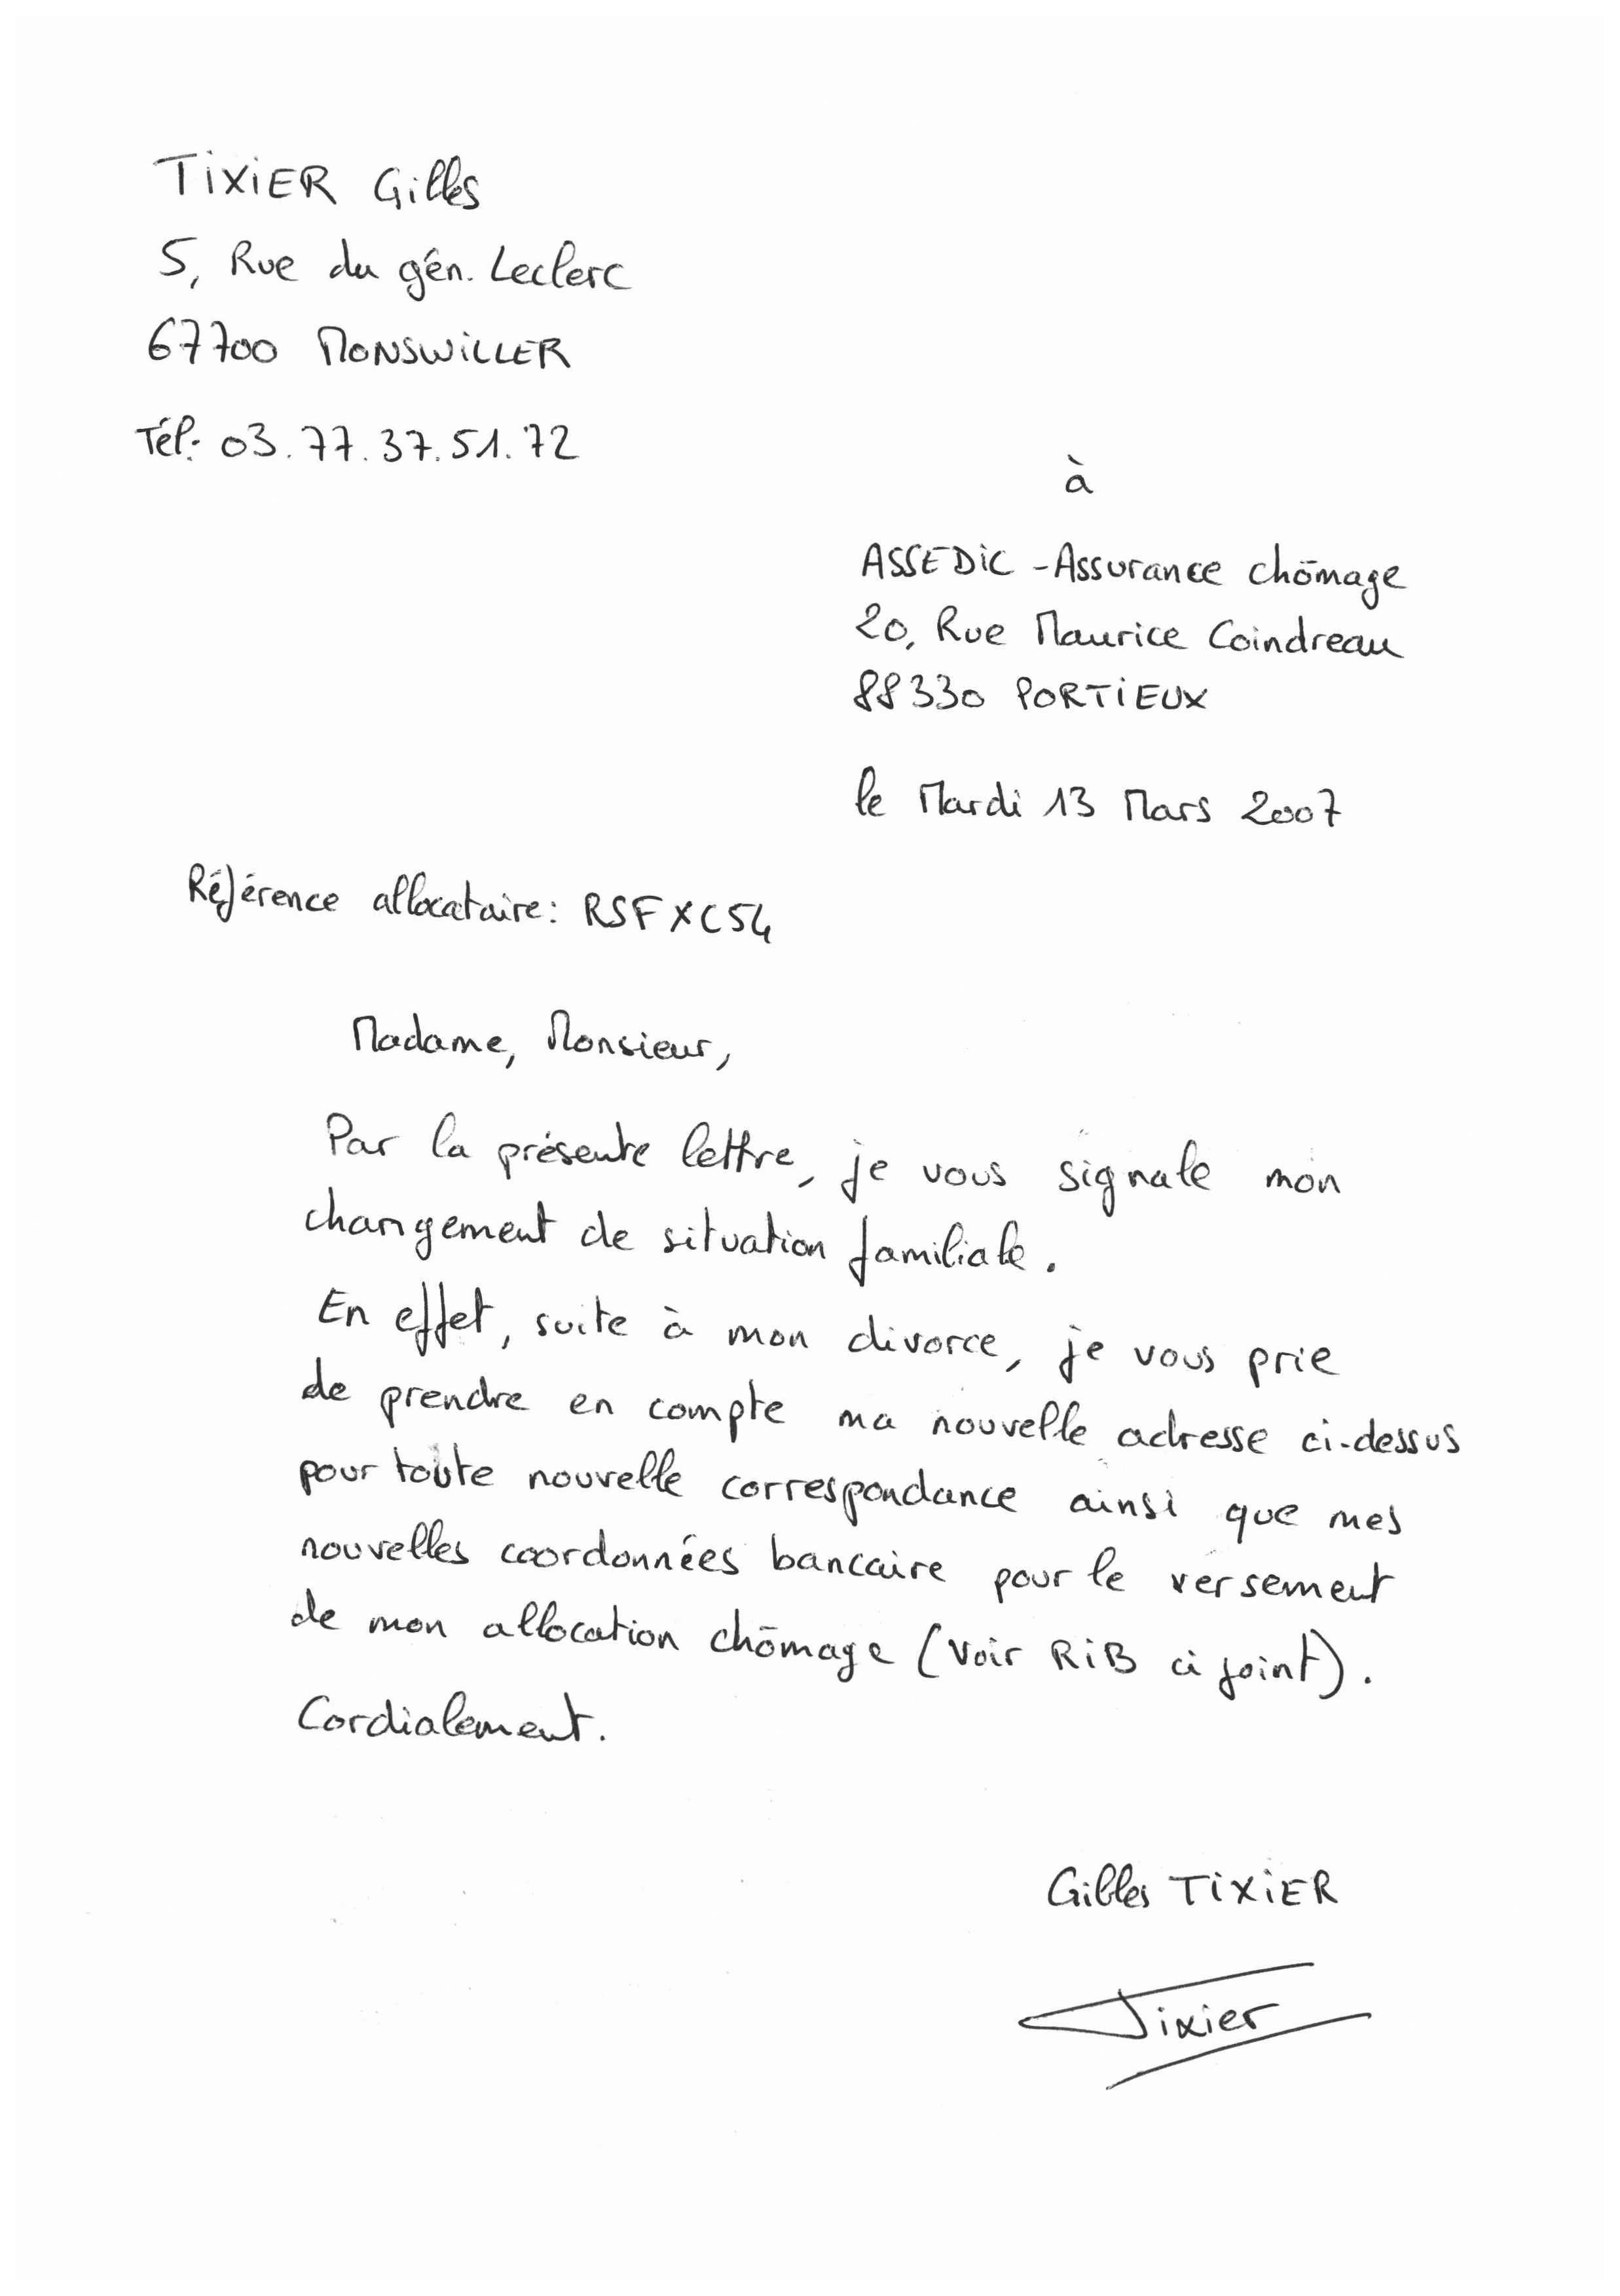 TIXIER Gilles
5, Rue du gén. Leclerc
67700 MONSWILLER
Tél: 03.77.37.51.72
à
ASSEDIC - Assurance chômage
20, Rue Maurice Coindreau
88330 PORTIEUX
le Mardi 13 Mars 2007
Référence allocataire: RSFXC54
Madame, Monsieur,
Par la présente lettre, je vous signale mon
changement de situation familiale.
En effet, suite à mon divorce, je vous prie
de prendre en compte ma nouvelle adresse ci-dessus
pour toute nouvelle correspondance ainsi que mes
nouvelles coordonnées bancaire pour le versement
de mon allocation chômage (Voir RIB ci joint).
Cordialement.
Gilles TIXIER
Tixier